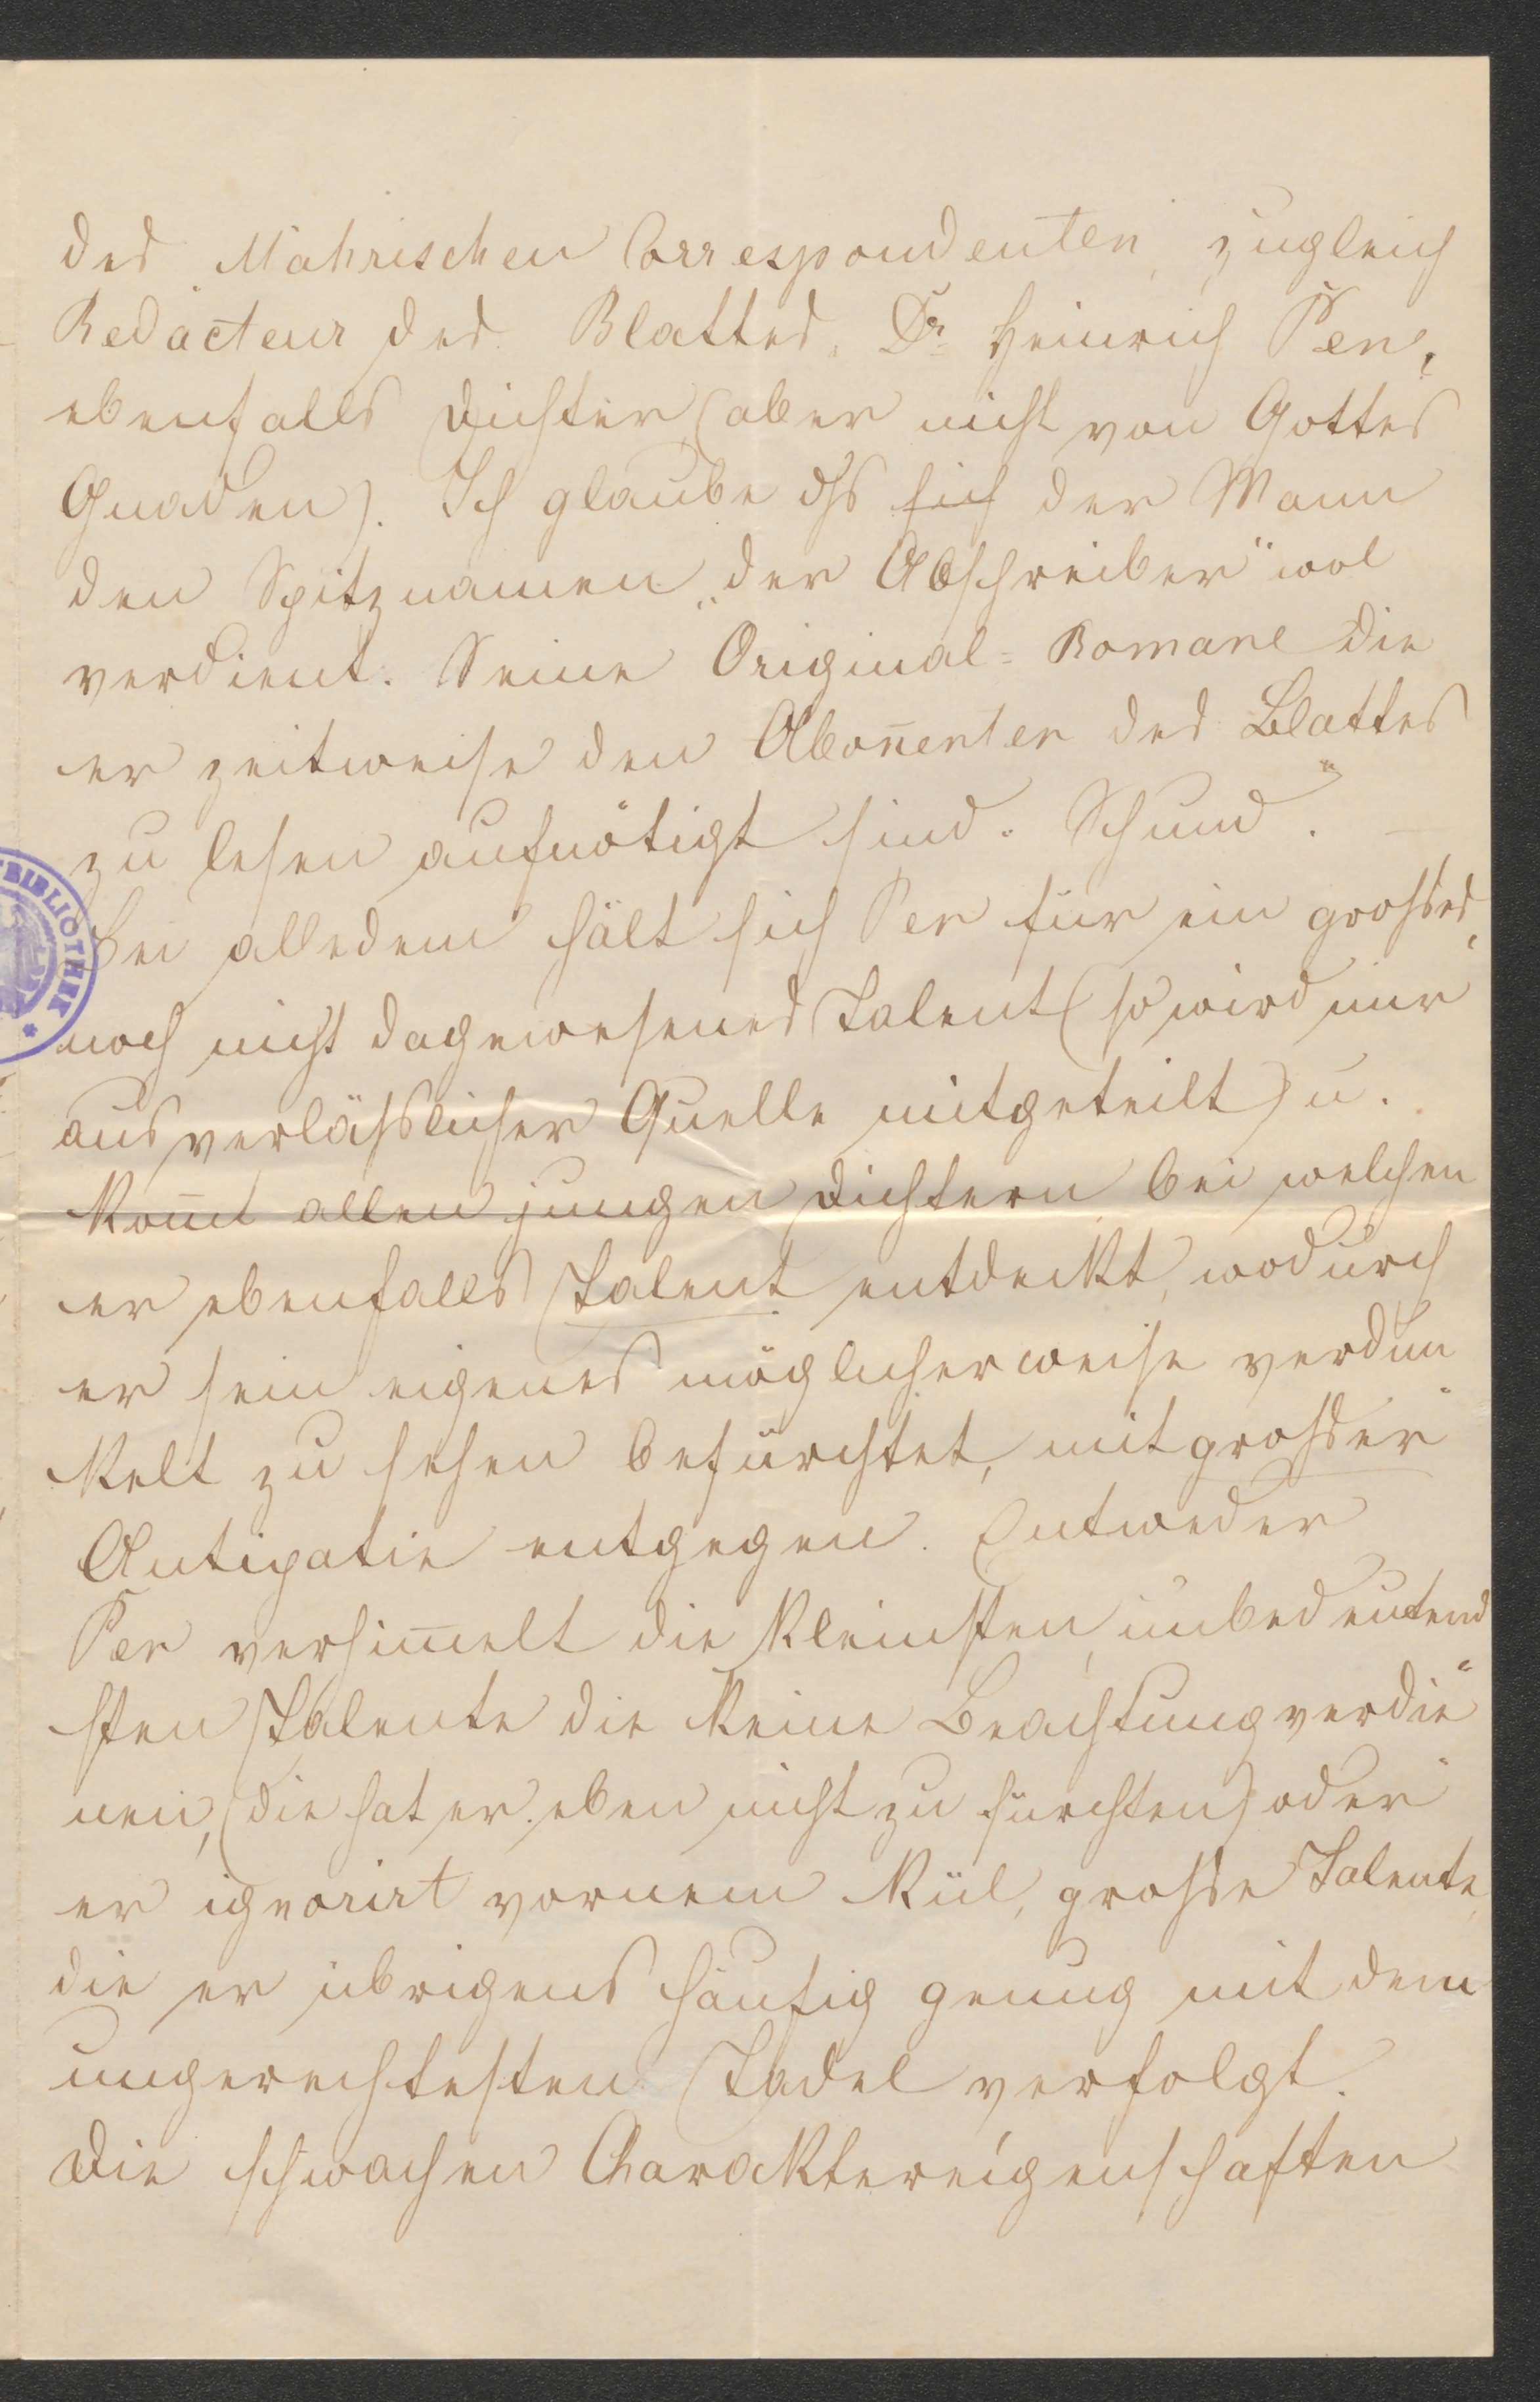 des Mährischen Correspondenten, zugleich
Redacteur des Blattes, Dr Heinrich Pen,
ebenfalls Dichter (aber nicht von Gottes
Gnaden). Ich glaube dſs sich der Mann
den Spitznamen „der Abschreiber" wol
verdient. Seine Original-Romane die
er zeitweise den Abon̄enten des Blattes
zu lesen aufnötigt sind: Schund.
Bei alledem hält sich Pen für ein großes,
noch nicht dagewesenes Talent (so wird mir
aus verläßlicher Quelle mitgeteilt) u.
kom̄t allen jungen Dichtern bei welchen
er ebenfalls Talent entdeckt, wodurch
er sein eigenes möglicherweise verdun
kelt zu sehen befürchtet, mit großer
Antipatie entgegen. Entweder
Pen verhim̄elt die kleinsten, unbedeutend
sten Talente die keine Beachtung verdie
nen, (die hat er eben nicht zu fürchten) oder
er ignorirt vornem kül, große Talente,
die er übrigens häufig genug mit dem
ungerechtesten Tadel verfolgt.
Die schwachen Charaktereigenschaften
BIBLIOTHEK